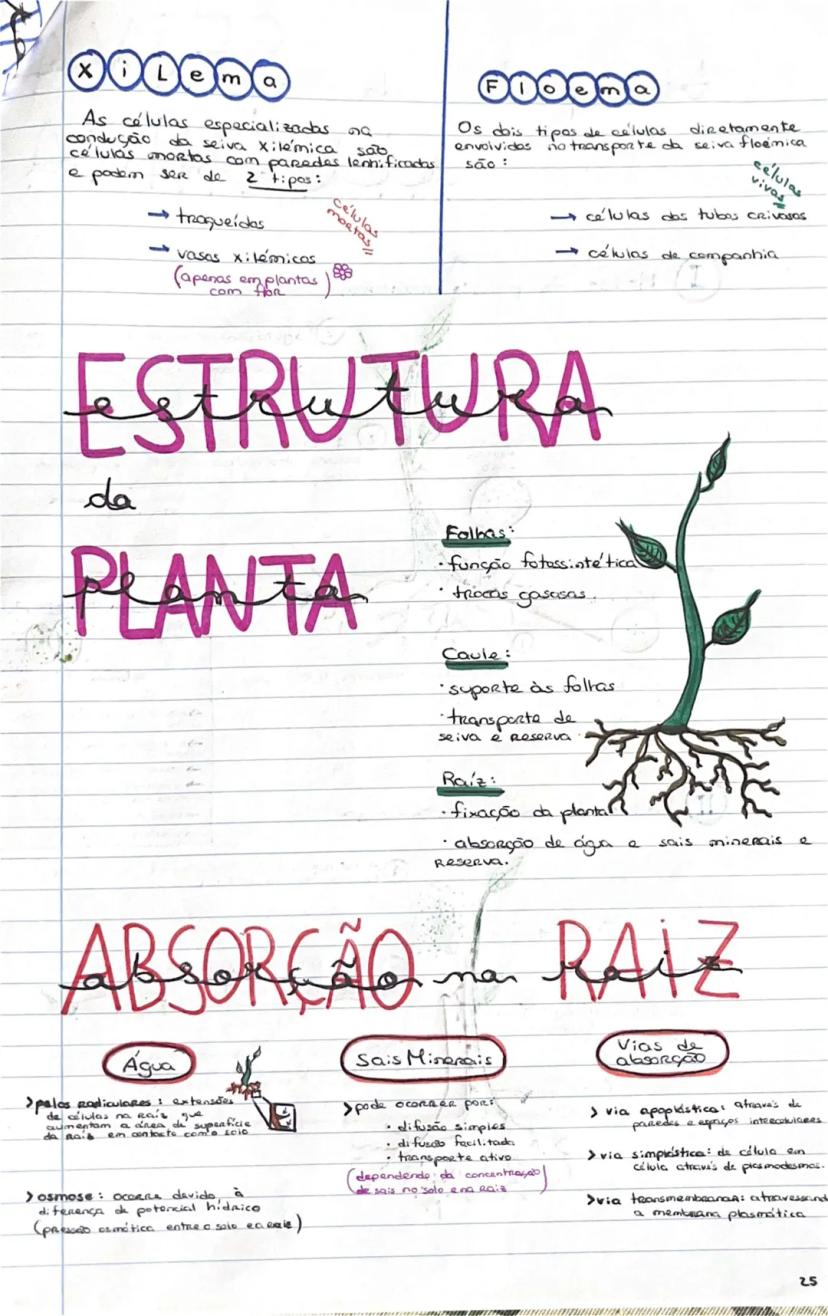 Xilema
As células especializadas na
condução da seiva xilémica são
células mortas com paredes lenhificadas
e podem ser de 2 tipos:
→ traqueídos
células
mortas
→ vasos xilémicos
(apenas em plantas
com flor)
Floema
Os dois tipos de células diretamente
envolvidos no transporte da seiva floémica
são:
células
vivas
→ células dos tubos crivosos
→ células de companhia
ESTRUTURA
estrutura
da
PLANTA
planta
Folhas:
· função fotossintética
· trocas gasosas.
Caule:
· suporte às folhas
· transporte de
seiva e reserva.
Raíz:
· fixação da planta
· absorção de água e sais minerais e
reserva.
ABSORÇÃO RAIZ
absorção na raiz
Água
> pelos radiculares: extensões
de células na raíz que
aumentam a área de superfície
da raíz em contacto com o solo
> osmose: ocorre devido à
diferença de potencial hídrico
(pressão osmótica entre o solo e a raiz)
Sais Minerais
> pode ocorrer por:
· difusão simples
· difusão facilitada
· transporte ativo
(dependendo da concentração
de sais no solo e na raiz)
Vias de
absorção
> via apoplástica: através de
paredes e espaços intercelulares
> via simplástica: de célula em
célula através de plasmodesmos.
> via transmembranar: atravessand
a membrana plasmática
25